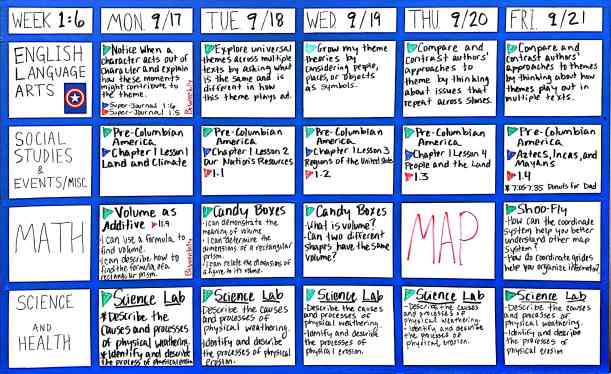 WEEK 1:6
MON 9/17
TUE 9/18
WED 9/19
THU 9/20
FRI 9/21
ENGLISH
LANGUAGE
ARTS
Notice when a
character acts out of
character and explain
how these moments
might contribute to
the theme.
Super-Journal 1:6
Super-Journal 1:5
Explore universal
themes across multiple
texts by asking what
is the same and is
different in how
this theme plays out.
Grow my theme
theories by
considering people,
places, or objects
as symbols.
Compare and
Contrast authors'
approaches to
theme by thinking
about issues that
repeat across stories.
Compare and
contrast authors'
approaches to themes
by thinking about how
themes play out in
multiple texts.
SOCIAL
STUDIES
&
EVENTS/MISC
Pre-Columbian
America
Chapter 1 Lesson 1
Land and Climate
Pre-Columbian
America
Chapter 1 Lesson 2
Our Nation's Resources
1.1
Pre-Columbian
America
Chapter 1 Lesson 3
Regions of the United States
1.2
Pre-Columbian
America
Chapter 1 Lesson 4
People and the Land
1.3
Pre-Columbian
America
Aztecs, Incas, and
Mayans
1.4
7:05-7:35 Donuts for Dad
MATH
Volume as
Additive 11.9
I can use a formula to
find volume.
I can describe how to
find the formula of a
rectangular prism.
Candy Boxes
I can demonstrate the
meaning of volume.
I can determine the
dimensions of a rectangular
prism.
I can relate the dimensions of
a figure to its volume.
Candy Boxes
-What is volume?
-Can two different
shapes have the same
volume?
MAP
Shoo-Fly
-How can the coordinate
system help you better
understand other map
systems?
-How do coordinate grids
help you organize information?
SCIENCE
AND
HEALTH
Science Lab
*Describe the
causes and processes
of physical weathering.
*Identify and describe
the process of physical erosion.
Science Lab
-Describe the causes
and processes of
physical weathering.
-Identify and describe
the processes of physical
erosion.
Science Lab
-Describe the causes
and processes of
physical weathering.
-Identify and describe
the processes of
physical erosion.
Science Lab
-Describe the causes
and processes of
physical weathering.
-Identify and describe
the processes of
physical erosion.
Science Lab
-Describe the causes
and processes of
physical weathering.
-Identify and describe
the processes of
physical erosion